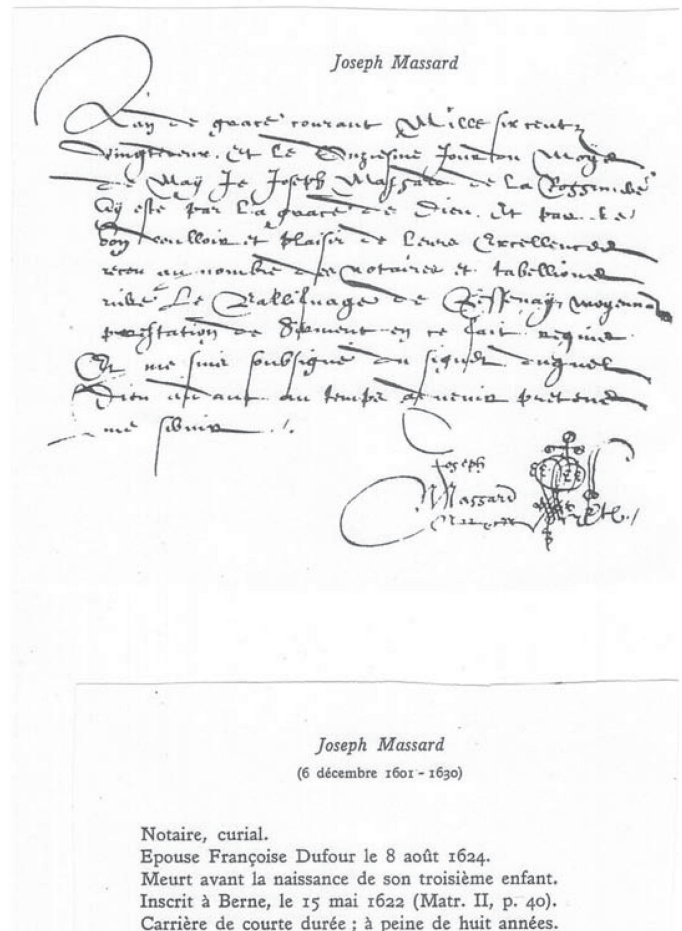 Joseph Massard
L'an de grace courant Mille six centz
vingtedeux. Et le Unziesme Jour du Moys
de May Je Joseph Massard de La
Ay esté par La grace de Dieu. Et par le
bon veulloir et plaisir de Leurs Excellences
receu au nombre des notaires et tabellions
rière Le Balliuage de moyennant
prestation de Serment en ce fait requise
Et me suis soubsigné du signet duquel
Dieu aydant au temps aduenir pretens
me seruir ./.
Joseph
Massard
Joseph Massard
(6 décembre 1601 - 1630)
Notaire, curial.
Epouse Françoise Dufour le 8 août 1624.
Meurt avant la naissance de son troisième enfant.
Inscrit à Berne, le 15 mai 1622 (Matr. II, p. 40).
Carrière de courte durée ; à peine de huit années.